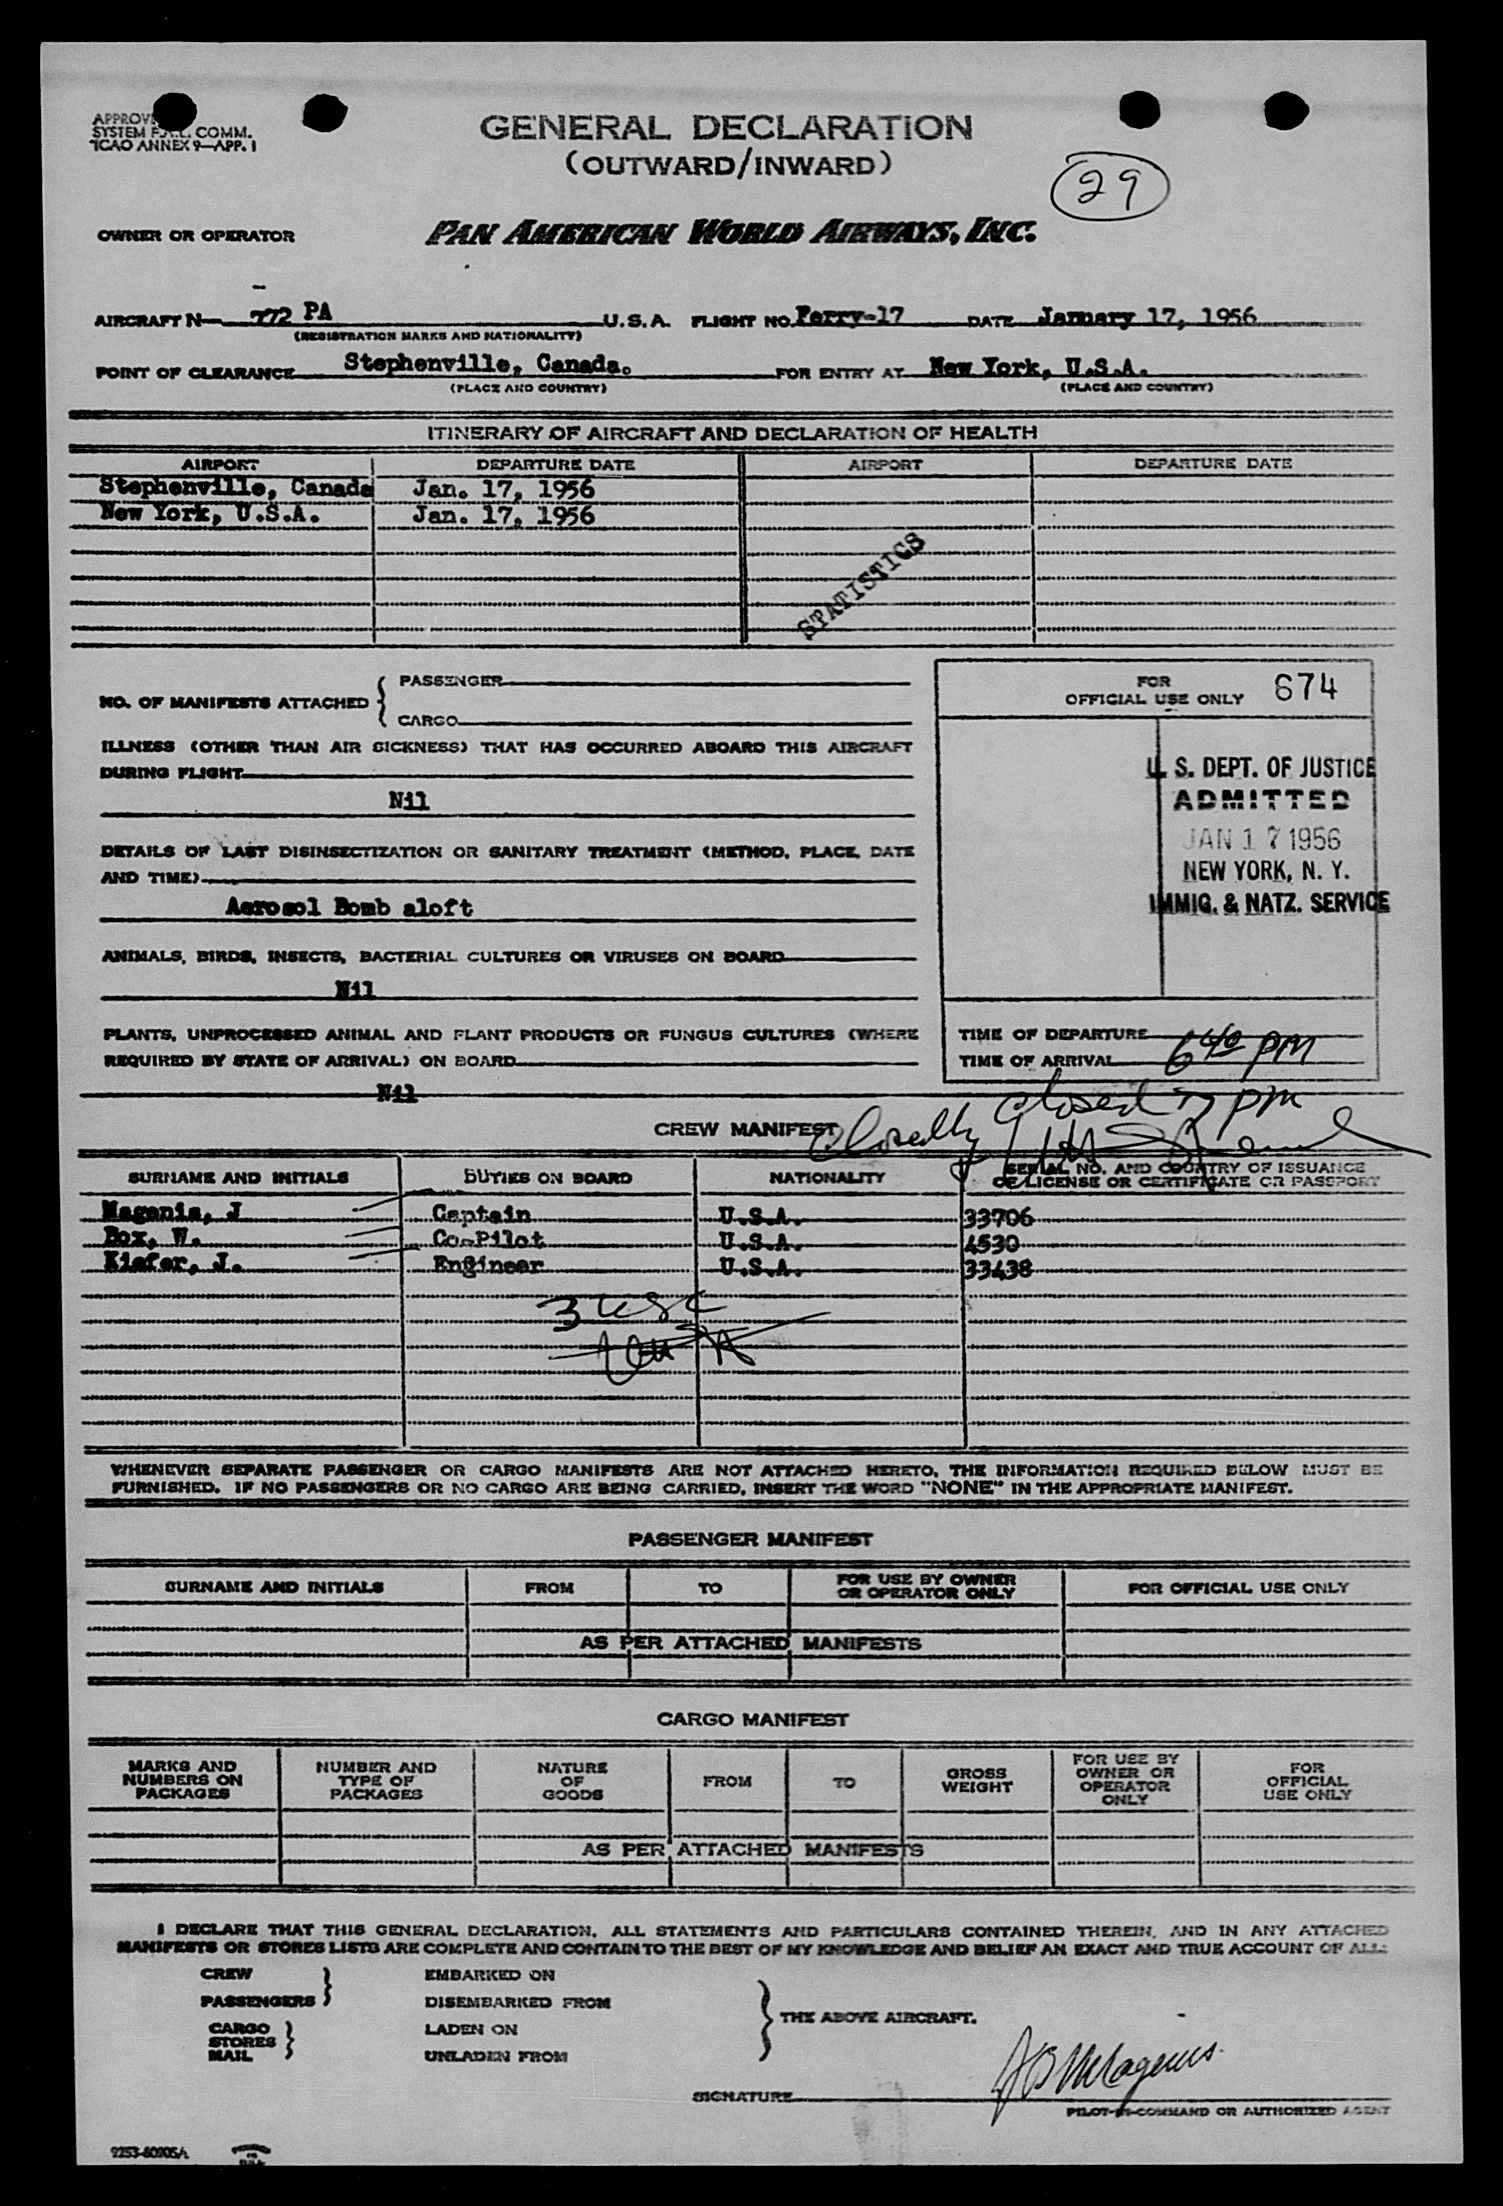 SYSTEM F.A.L. COMM.
ICAO ANNEX 9—APP. 1
GENERAL DECLARATION
(OUTWARD/INWARD)
29
OWNER OR OPERATOR
PAN AMERICAN WORLD AIRWAYS, INC.
AIRCRAFT N— 772 PA U.S.A. FLIGHT NO. Ferry-17 DATE January 17, 1956
(REGISTRATION MARKS AND NATIONALITY)
POINT OF CLEARANCE Stephenville, Canada. FOR ENTRY AT New York, U.S.A.
(PLACE AND COUNTRY) (PLACE AND COUNTRY)
ITINERARY OF AIRCRAFT AND DECLARATION OF HEALTH
AIRPORT DEPARTURE DATE AIRPORT DEPARTURE DATE
Stephenville, Canada Jan. 17, 1956
New York, U.S.A. Jan. 17, 1956
STATISTICS
NO. OF MANIFESTS ATTACHED { PASSENGER
CARGO
FOR
OFFICIAL USE ONLY 674
ILLNESS (OTHER THAN AIR SICKNESS) THAT HAS OCCURRED ABOARD THIS AIRCRAFT
DURING FLIGHT
Nil
U. S. DEPT. OF JUSTICE
ADMITTED
JAN 17 1956
NEW YORK, N. Y.
IMMIG. & NATZ. SERVICE
DETAILS OF LAST DISINSECTIZATION OR SANITARY TREATMENT (METHOD, PLACE, DATE
AND TIME)
Aerosol Bomb aloft
ANIMALS, BIRDS, INSECTS, BACTERIAL CULTURES OR VIRUSES ON BOARD
Nil
PLANTS, UNPROCESSED ANIMAL AND PLANT PRODUCTS OR FUNGUS CULTURES (WHERE
REQUIRED BY STATE OF ARRIVAL) ON BOARD
Nil
TIME OF DEPARTURE
TIME OF ARRIVAL 6 40 PM
closed 7 pm
CREW MANIFEST
SURNAME AND INITIALS DUTIES ON BOARD NATIONALITY SERIAL NO. AND COUNTRY OF ISSUANCE
OF LICENSE OR CERTIFICATE OR PASSPORT
Magenis, J Captain U.S.A. 33706
Box, W. Co-Pilot U.S.A. 4530
Kiefer, J. Engineer U.S.A. 33438
3 USC
WHENEVER SEPARATE PASSENGER OR CARGO MANIFESTS ARE NOT ATTACHED HERETO, THE INFORMATION REQUIRED BELOW MUST BE
FURNISHED. IF NO PASSENGERS OR NO CARGO ARE BEING CARRIED, INSERT THE WORD "NONE" IN THE APPROPRIATE MANIFEST.
PASSENGER MANIFEST
SURNAME AND INITIALS FROM TO FOR USE BY OWNER
OR OPERATOR ONLY FOR OFFICIAL USE ONLY
AS PER ATTACHED MANIFESTS
CARGO MANIFEST
MARKS AND
NUMBERS ON
PACKAGES
NUMBER AND
TYPE OF
PACKAGES
NATURE
OF
GOODS
FROM
TO
GROSS
WEIGHT
FOR USE BY
OWNER OR
OPERATOR
ONLY
FOR
OFFICIAL
USE ONLY
AS PER ATTACHED MANIFESTS
I DECLARE THAT THIS GENERAL DECLARATION, ALL STATEMENTS AND PARTICULARS CONTAINED THEREIN, AND IN ANY ATTACHED
MANIFESTS OR STORES LISTS ARE COMPLETE AND CONTAIN TO THE BEST OF MY KNOWLEDGE AND BELIEF AN EXACT AND TRUE ACCOUNT OF ALL:
CREW } EMBARKED ON
PASSENGERS DISEMBARKED FROM
THE ABOVE AIRCRAFT.
CARGO LADEN ON
STORES }
MAIL UNLADEN FROM
SIGNATURE JB Magenis
PILOT-IN-COMMAND OR AUTHORIZED AGENT